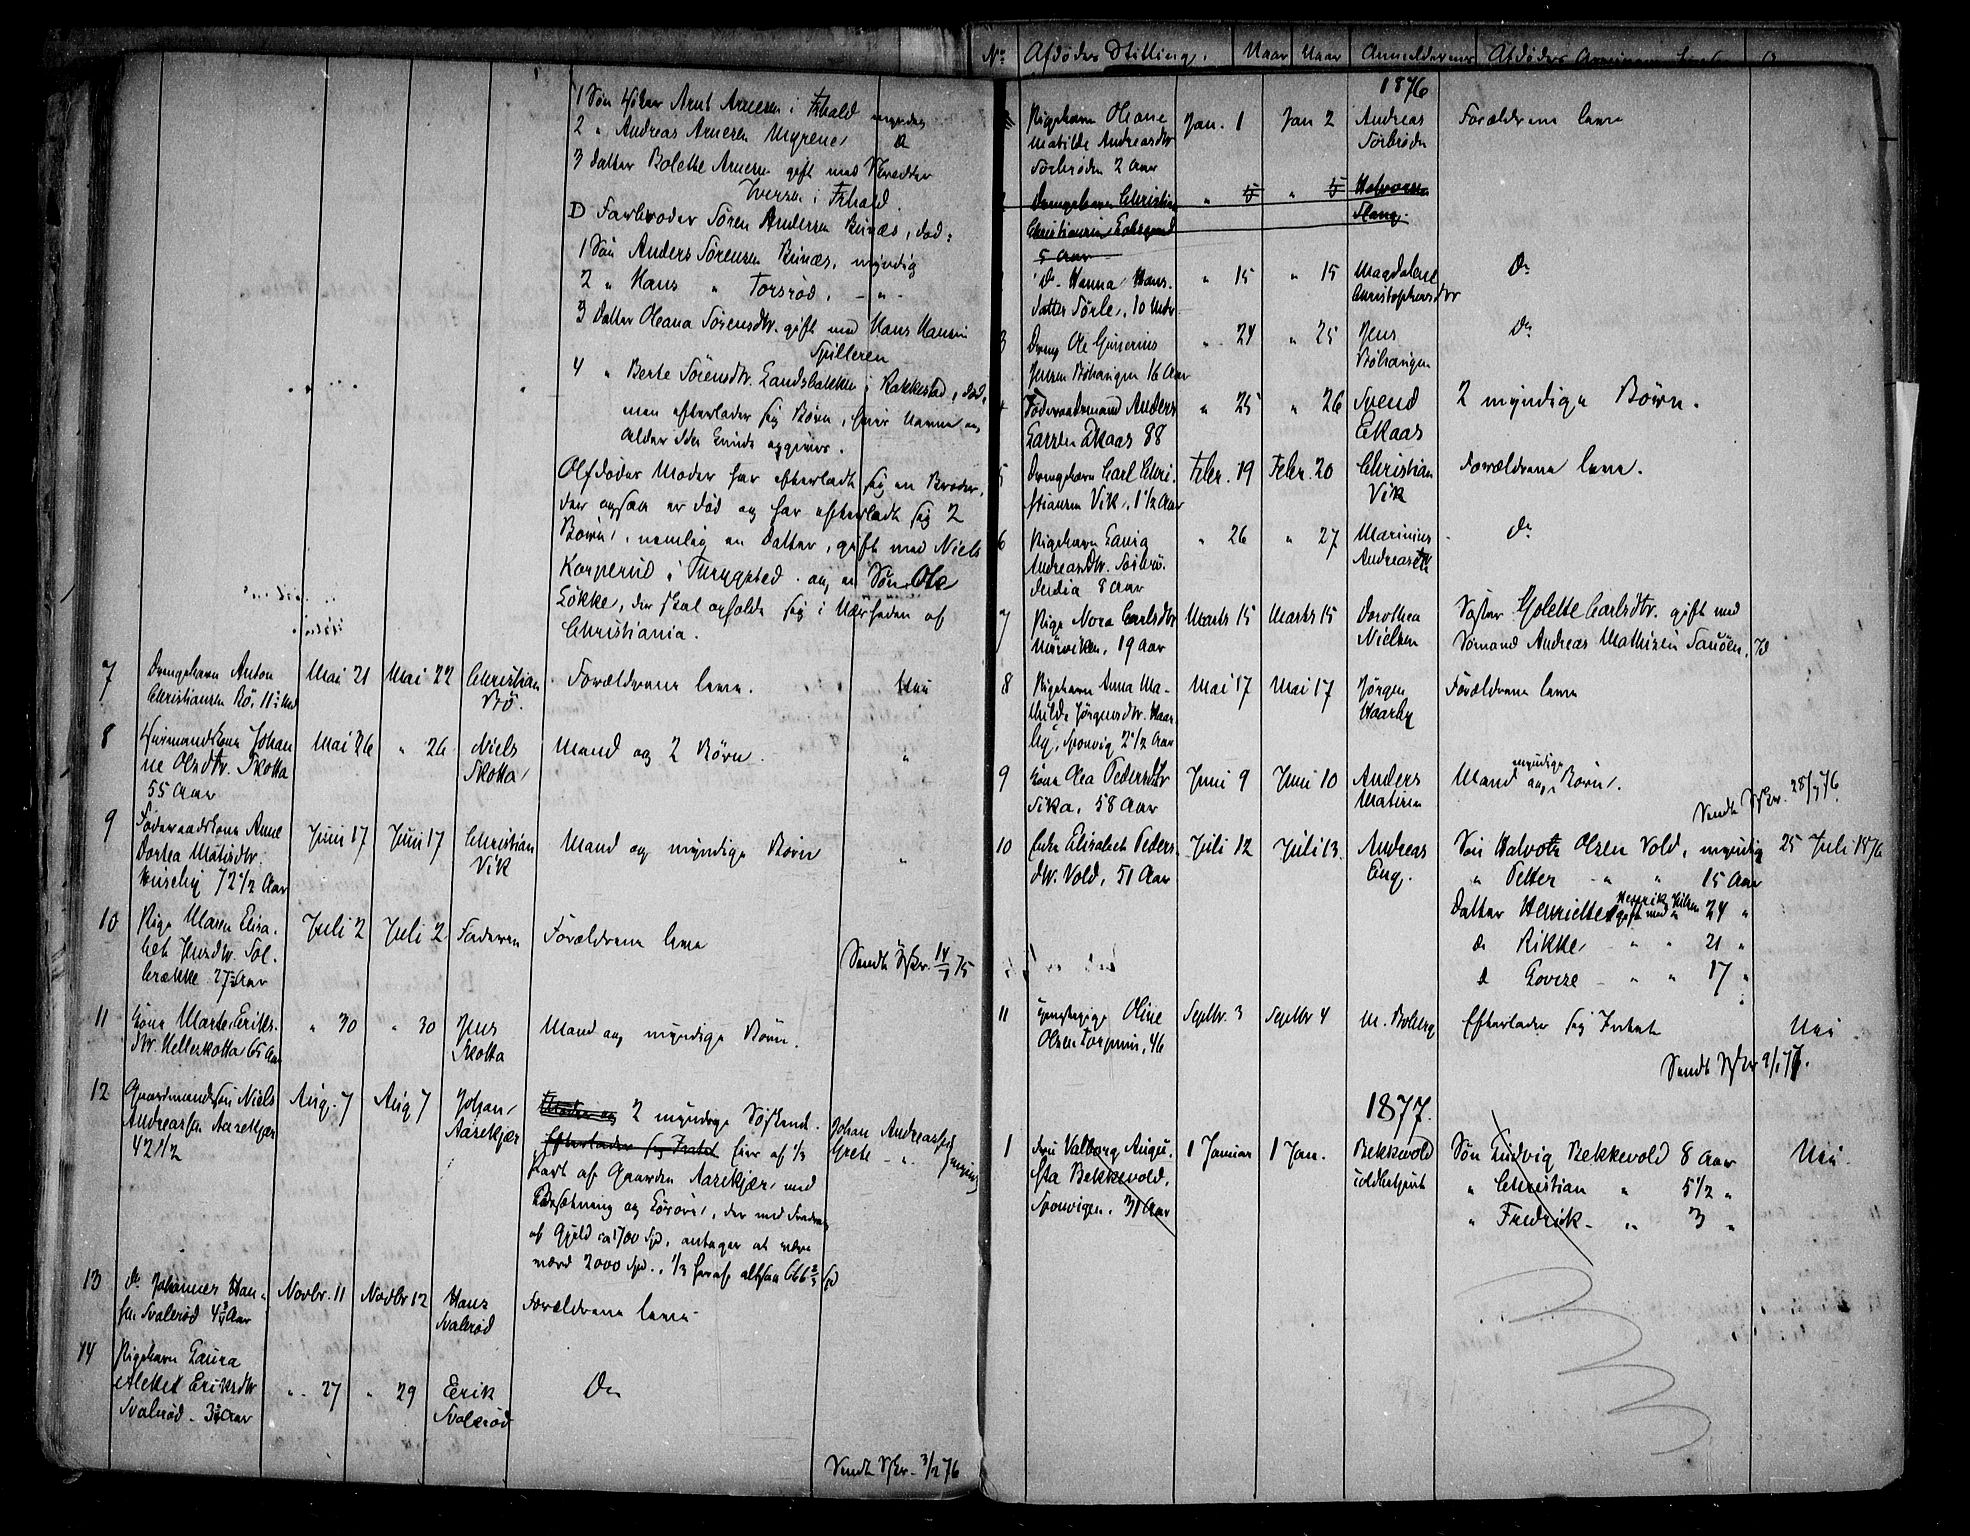 1 Søn Arnt Arnesen i Frhald myndig
2 " Andreas Arnesen Myrene, Do
3 Datter Bolette Arnesen gift med
Iversen i Frhald.
D Farbroder Sören Andersen Bunæs, død:
1 Søn Anders Sörensen Bunæs, myndig
2 " Hans " Torsrød, - " -
3 Datter Oleana Sörensdtr. gift med Hans Hansen
Spilleren
4 " Berte Sörensdtr. Landsbakken i Rakkestad, død,
men efterlader sig Børn, hvis Navne og
Alder ikke kunde opgives.
Afdødes Moder har efterladt sig en Broder,
der ogsaa er død og har efterladt sig 2
Børn, nemlig en Datter, gift med Niels
Korperud i Trygstad og en Søn Ole
Løkke, der skal opholde sig i Nærheden af
Christiania.
7 Drengebarn Anton Mai 21 Mai 22 Christian Forældrene leve. Nei
Christiansen Bö, 11 Md Bö.
8 Husmandskone Johan Mai 26 " 26 Niels Mand og 2 Børn. "
ne Olsdtr. Skotta Skotta
55 Aar
9 Føderaadskone Anne Juni 17 Juni 17 Christian Mand og myndige Børn "
Dortea Matisdtr. Vik
Huseby 72 1/2 Aar
10 Pige Maren Elisa- Juli 2 Juli 2 Faderen Forældrene leve
bet Jensdtr. Sol-
brække 27 Aar Sendt Skr. 14/7 75
11 Kone Marte Eriks- " 30 " 30 Jens Mand og myndige Børn.
dtr. Mellerskotta 65 Aar Skotta
12 Gaardmandssøn Niels Aug. 7 Aug 7 Johan 2 myndige Søskende. Johan Andreassen
Andreassen Aarekjær Aarekjær Efterlader sig Intet Eier af 1/3 Grete - " - myndig
42 1/2 Part af Gaarden Aarekjær, med
Besætning og Løsøre, der med Fradrag
af Gjæld ca 1700 Spd, antages at være
værd 2000 Spd., 1/3 heraf altsaa 666 2/3 Spd
13 Do Johannes Han- Novbr. 11 Novbr 12 Hans Forældrene leve
sen Svalerød 4 Aar Svalerød
14 Pigebarn Laura
Alettet Eriksdtr " 27 " 29 Erik Do
Svalerød - 3 Aar Svalerød
Sendt Skr. 3/2 76
No Afdødes Stilling. Naar Naar Anmelderens Afdødes
1876
Pigebarn Oleane Jan. 1 Jan 2 Andreas Forældrene leve
Matilde Andreasdtr Torbrøden
Torbrøden 2 Aar
2 Drengebarn Christian " 5 " 5 Halvorsen
Christiansen Stang.
5 Aar
Do Hanna Hans- " 15 " 15 Magdalene Do
datter Torle, 10 Uder Christophersdtr
3 Dreng Ole Gunerius " 24 " 25 Jens Do
Jensen Böhaugen 16 Aar Böhaugen
4 Föderaadsmand Anders " 25 " 26 Svend 2 myndige Børn.
Larsen Ekaas 88 Ekaas
5 Drengebarn Carl Chri- Febr. 19 Febr. 20 Christian Forældrene leve.
stiansen Vik, 1 1/2 Aar Vik
6 Pigebarn Laura " 26 " 27 Marinius Do
Andreasdtr. Andreasen
8 Aar
7 Pige Nora Carlsdtr Marts 15 Marts 15 Dorothea Søster Golette Carlsdtr. gift med
19 Aar Nielsen Sømand Andreas Mathisen
8 Pigebarn Anna Ma- Mai 17 Mai 17 Jørgen Forældrene leve
thilde Jørgensdtr. Haar- Haarby
by, Sponvig 2 1/2 Aar
9 Kone Olea Pedersdtr Juni 9 Juni 10 Anders Mand og myndige Børn.
Sika, 58 Aar Matisen Sendt Skr. 28/7 76
10 Enke Elisabet Peders- Juli 12 Juli 13 Andreas Søn Halvor Olsen Vold, myndig 25 Juli 1876
dtr. Vold, 51 Aar Eng. " Petter - " " 15 Aar
Datter Henriette gift med Henrik Nilsen 24 "
Do Rikke - " " 21 "
Do Lovise - " " 17 "
11 Oline Septbr. 3 Septbr 4 M. Boberg Efterlader sig Intet Nei
Olsen Torpum, 46 Sendt Skr 9/1 77.
1877.
1 Fru Valborg Augu- 1 Januar 1 Jan. Bekkevold Søn Ludvig Bekkevold 8 Aar Nei.
sta Bekkevold, Toldbetjent " Christian " 5 1/2 "
Sponvigen, 31 Aar " Fredrik - " 3 "